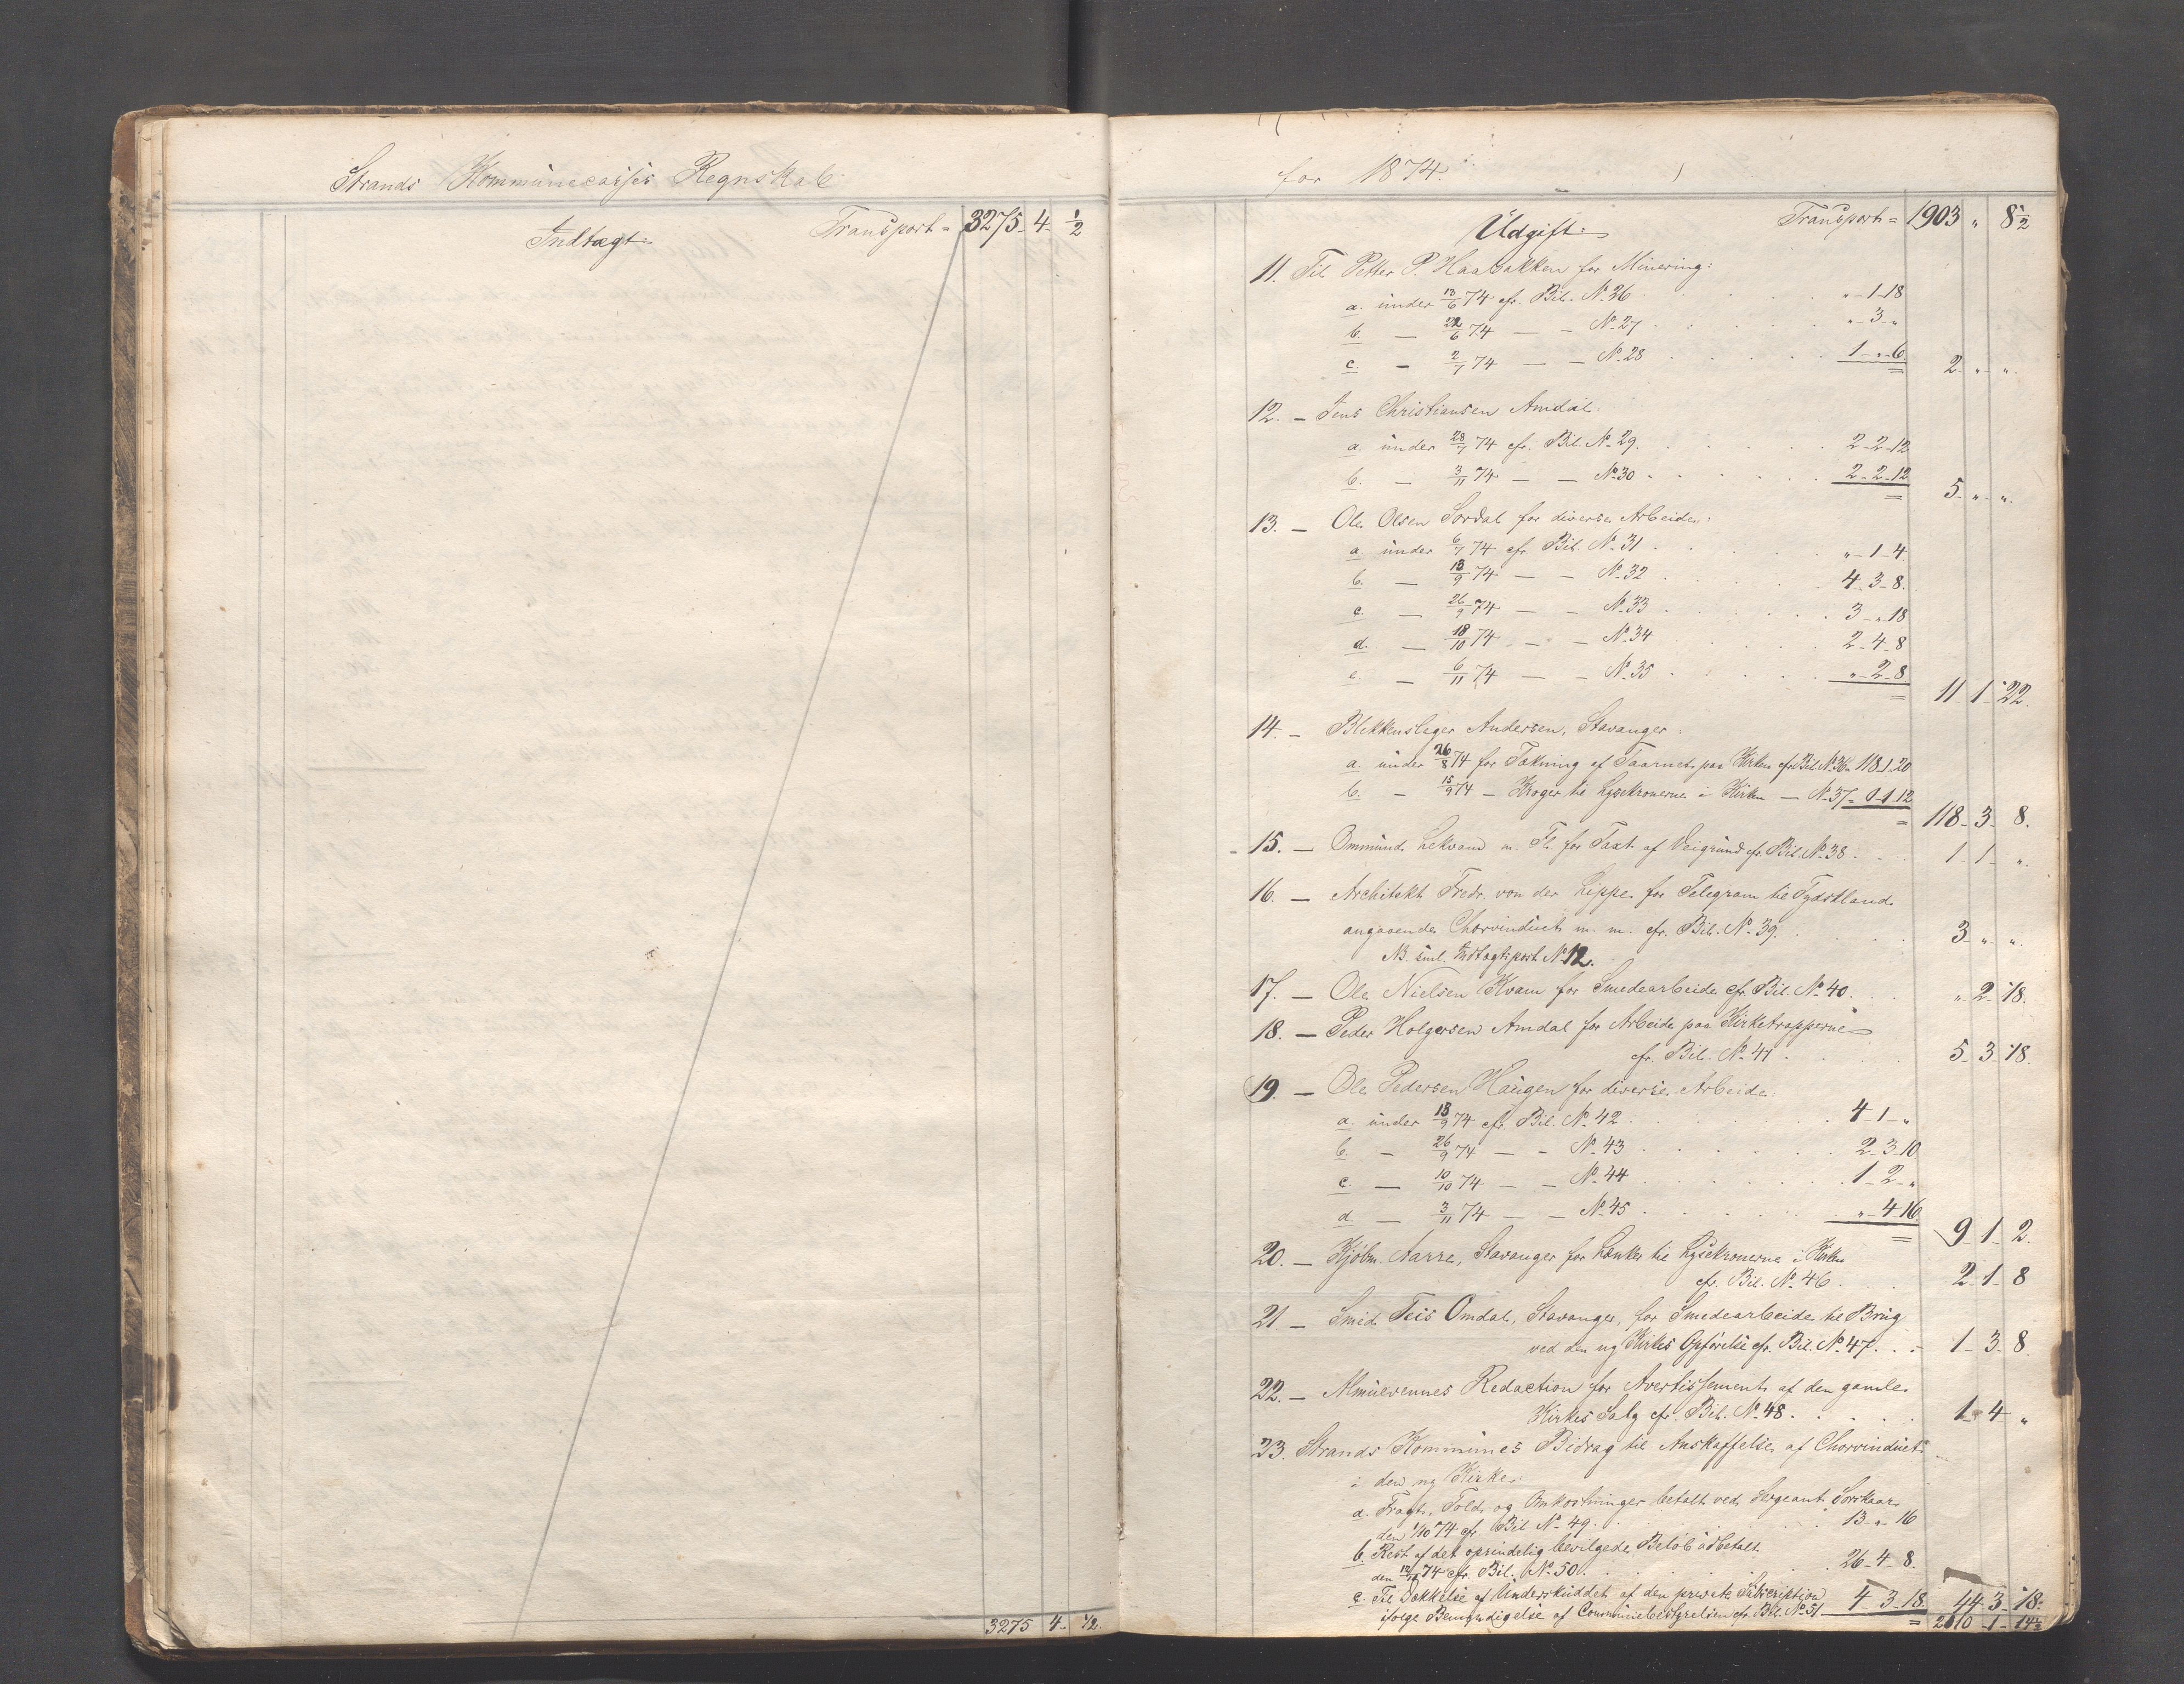 Strands Kommunecasses Regnskab
Indtægt: Transport = 3275 - 4 - 1/2
3275 4 - 1/2.
for 1874.
Udgift: Transport = 1903 „ 8 1/2
11. Til Petter P. Haabakken for Minering:
a. under 13/6 74 cfr. Bil. No 26 . . . „ - 1 - 18
b. — 22/6 74 — — No 27 . . . „ - 3 - „
c. — 2/7 74 — — No 28 . . . 1 - „ - 6. = 2 - „ - „.
12. — Jens Christiansen Amdal:
a. under 28/7 74 cfr. Bil. No 29. . . . 2 - 2 - 12
b. — 3/11 74 — — No 30 . . . 2 - 2 - 12 = 5 - „ - „.
13. — Ole Olsen Sordal for diverse Arbeide:
a. under 6/7 74 cfr. Bil. No 31 . . . „ - 1 - 4
b. — 13/9 74 — — No 32 . . . 4 - 3 - 8.
c. — 26/9 74 — — No 33 . . . 3 - „ - 18
d. — 18/10 74 — — No 34 . . . 2 - 4 - 8
e. — 6/11 74 — — No 35 . . . „ - 2 - 8 = 11 - 1 - 22.
14. — Blikkenslager Andersen, Stavanger:
a. under 26/8 74 for Tækning af Taarnet paa Kirken cfr Bil. No 36 118 - 1 - 20
b. — 15/9 74 — Kroger til Lysekronerne i Kirken — No 37 - 0 - 1 - 12 = 118 - 3 - 8.
15. — Ommund Lekvam m. Fl. for Taxt af Veigrund cfr. Bil. No 38 . . . 1 1 - „.
16. — Architekt Fredr. von der Lippe for Telegram til Tydskland
angaaende Chorvinduet m. m. cfr. Bil. No 39. . . . 3 - „ - „.
NB. sml. Indtægtspost No 12.
17. — Ole Nielsen Kvam for Smedearbeide cfr. Bil. No 40. . . . „ - 2 - 18.
18. — Peder Holgersen Amdal for Arbeide paa Kirketrapperne
cfr. Bil. No 41 . . . 5 - 3 - 18.
19. — Ole Pedersen Haugen for diverse Arbeide:
a. under 18/9 74 cfr. Bil. No 42 . . . 4 - 1 - „
b. — 26/9 74 — — No 43 . . . 2 - 3 - 10
c. — 10/10 74 — — No 44 . . . 1 - 2 - „
d. — 3/11 74 — — No 45 . . . „ - 4 - 16 = 9 - 1 - 2.
20. — Kjøbm. Aarre, Stavanger for Lænker til Lysekronerne i Kirken
cfr. Bil. No 46 . . . 2 - 1 - 8
21. — Smed Teis Omdal, Stavanger, for Smedearbeide til Brug
ved den ny Kirkes Opførelse cfr. Bil. No 47. . . 1 - 3 - 8.
22. — Almuevennes Redaction for Avertissement af den gamle
Kirkes Salg cfr. Bil. No 48 . . . 1 - 4 - „
23. Strands Kommunes Bidrag til Anskaffelse af Chorvinduet
i den ny Kirke:
a. Fragt, Told og Omkostninger betalt ved Sergeant Sorskaar
den 1/10 74 cfr. Bil No 49 . . . 13 - „ - 16
b. Rest af det oprindelig bevilgede Beløb udbetalt
den 12/11 74 cfr. Bil. No 50 . . . 26 - 4 - 8.
c. Til Dækkelse af Underskuddet af den private Subscription
ifølge Bemyndigelse af Communebestyrelsen cfr. Bil. No 51 — 4 - 3 - 18 = 44 - 3 - 18.
2610 - 1 - 14 1/2